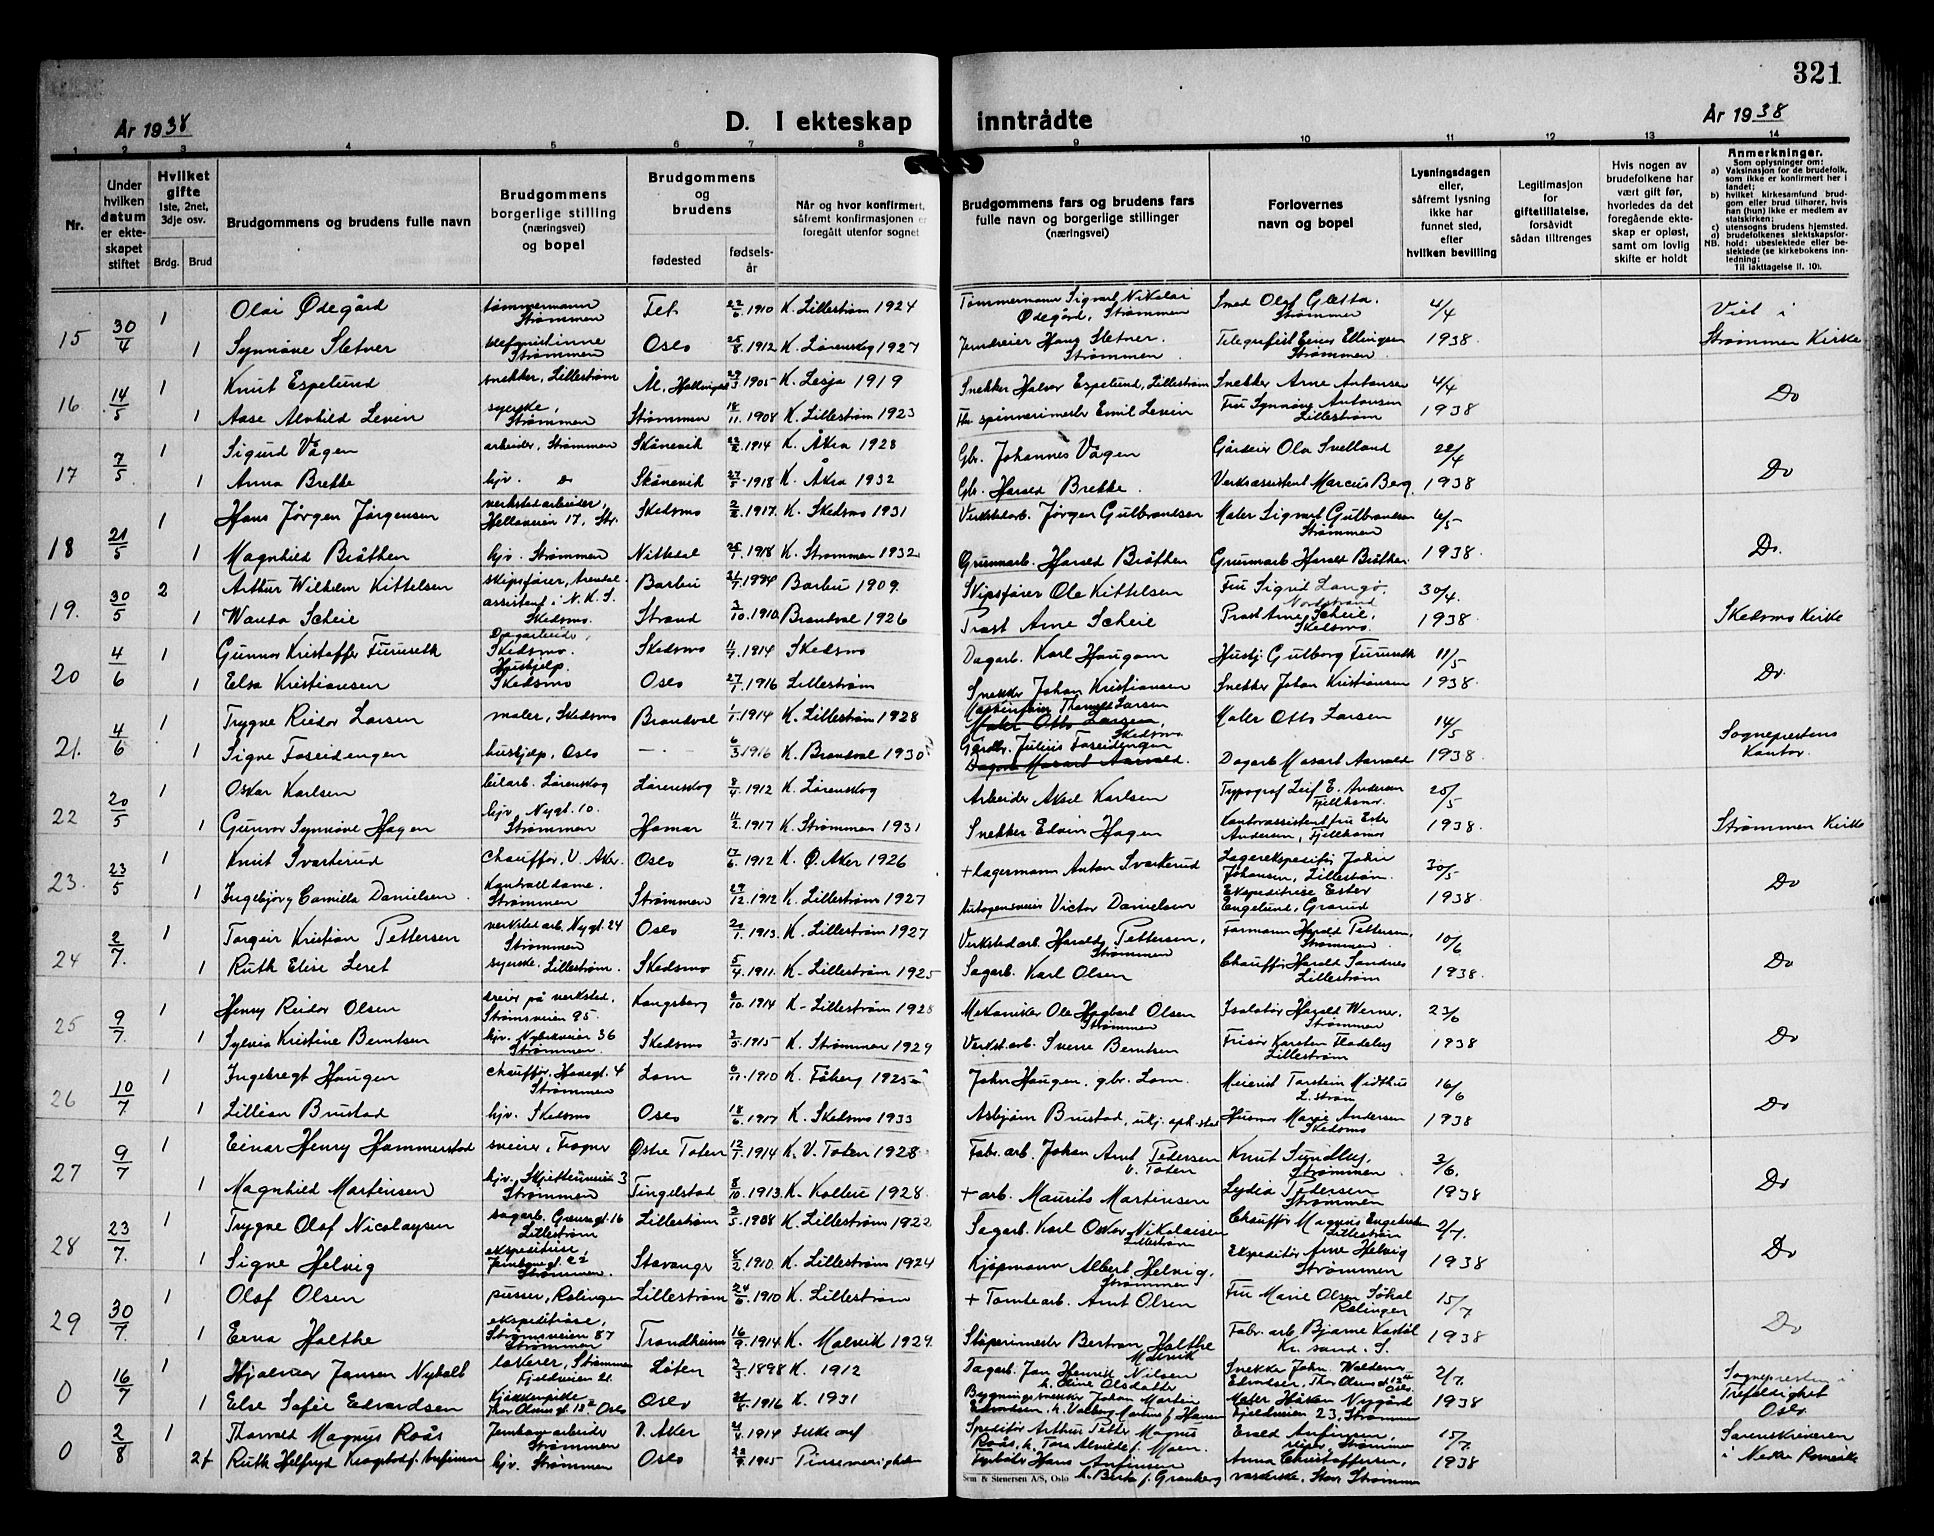 321
År 1938
D. I ekteskap inntrådte
År 1938
1 2 3 4 5 6 7 8 9 10 11 12 13 14
Nr.
Under hvilken datum er ekteskapet stiftet
Hvilket gifte 1ste, 2net, 3dje osv.
Brdg. Brud
Brudgommens og brudens fulle navn
Brudgommens borgerlige stilling (næringsvei) og bopel
Brudgommens og brudens
fødested
fødselsår
Når og hvor konfirmert, såfremt konfirmasjonen er foregått utenfor sognet
Brudgommens fars og brudens fars fulle navn og borgerlige stillinger (næringsvei)
Forlovernes navn og bopel
Lysningsdagen eller, såfremt lysning ikke har funnet sted, efter hvilken bevilling
Legitimasjon for giftetillatelse, forsåvidt sådan tiltrenges
Hvis nogen av brudefolkene har vært gift før, hvorledes da det foregående ekteskap er opløst, samt om lovlig skifte er holdt
Anmerkninger.
Som oplysninger om:
a) Vaksinasjon for de brudefolk, som ikke er konfirmert her i landet;
b) hvilket kirkesamfund brudgom eller brud tilhører, hvis han (hun) ikke er medlem av statskirken;
c) utensogns brudens hjemsted.
d) brudefolkenes slektskapsforhold: ubeslektede eller beslektede (se kirkebokens innledning:
NB.
Til iakttagelse II. 10).
15 30/4 1 Olai Ødegård tømmermann Strømmen Fet 22/6 1910 K. Lillestrøm 1924 Tømmermann Sigvart Nikolai Ødegård, Strømmen Smed Olaf Gletta. Strømmen 4/4 1938. Viet i Strømmen Kirke
1 Synnøve Sletner Strømmen Oslo 25/8 1912 K. Lørenskog 1927 Hans Sletner. Strømmen Telegrafist Einar Ellingsen Strømmen
16 14/5 1 Knut Espelund snekker, Lillestrøm Ål, 29/3 1905 K. Lesja 1919 Snekker Halvor Espelund, Lillestrøm Snekker Arne Antonsen 4/4 1938 Do
1 Aase Alvhild Levin syerske, Strømmen Strømmen 18/11 1908 K. Lillestrøm 1923 Fh. spinnerimester Emil Levin Fru Synnøve Antonsen Lillestrøm
17 7/5 1 Sigurd Vågen arbeider, Strømmen Skånevik 1914 K. Åkra 1928 Gbr. Johannes Vågen Gårdeier Ola Svelland 22/4 1938 Do
1 Anna Brekke hjv. do Skånevik 27/5 1918 K. Åkra 1932 Gbr. Harald Brekke. Verksassistent Marcus Berg
18 21/5 1 Hans Jørgen Jørgensen verkstedarbeider, 17, Str. Skedsmo 1917. K. Skedsmo 1931 Verkstedarb. Jørgen Gulbrandsen Maler Sigvart Gulbrandsen Strømmen 6/5 1938. Do.
1 Magnhild Bråthen hjv. Strømmen Nittedal 1918 K. Strømmen 1932 Grunnarb. Harald Bråthen Grunnarb. Harald Bråthen
19. 30/5 2 Arthur Wilhelm Kittelsen skipsfører, Arendal Barbu Barbu 1909. Skipsfører Ole Kittelsen Fru Sigrid Langø, Nordstrand 30/4. 1938. Skedsmo Kirke
1 Wanda Scheie assistent i N.K.S. Skedsmo. Strand 1910 Brandval 1926 Prost Arne Scheie Prost Arne Scheie, Skedsmo
20 4/6 1 Gunnar Kristoffer Furuseth Dagarbeider, Skedsmo. Skedsmo 1914 Skedsmo Dagarb. Karl Haugom Hustj. Gulborg Furuseth 11/5 1938. Do
1 Elsa Kristiansen Hushjelp. Skedsmo Oslo 27/1 1916 Lillestrøm Snekker Johan Kristiansen Snekker Johan Kristiansen
21. 4/6 1 Trygve Reidar Larsen maler, Skedsmo Brandval 1/1 1914 K. Lillestrøm 1928 Larsen Maler Otto Larsen, Skedsmo Maler Otto Larsen 14/5 1938. Sogneprestens Kontor.
1 Signe Foseidengen hushjelp, Oslo — 6/3 1916 K. Brandval 1930 Gårdbr. Julius Foseidengen Dagarb. Aarvold. Dagarb. Aarvold
22 20/5 1 Oskar Karlsen bilarb. Lørenskog Lørenskog 8/4 1912 K. Lørenskog Arbeider Aksel Karlsen Typograf Leif E. Andersen Fjellhamar. 25/5 1938. Strømmen Kirke
1 Gunvor Synnøve Hagen hjv. Nygt. 10. Strømmen Hamar 11/2 1917 K. Strømmen 1931 Snekker Edvin Hagen Kontorassistent fru Ester Andersen, Fjellhamar
23. 23/5 1 Knut Svarterud Chauffør, V. Aker. Oslo 17/6 1912 K. Ø. Aker 1926 + lagermann Anton Svarterud Lagerekspeditør John Johansen, Lillestrøm. 30/5 1938. Do
1 Ingebjørg Camilla Danielsen. Kontrolldame. Strømmen Strømmen 29/12 1912 K. Lillestrøm 1927 Victor Danielsen Ekspeditrise Ester Engelund, Grorud
24 2/7. 1 Torgeir Kristian Pettersen verksted arb. Nygt. 24 Strømmen Oslo 20/1 1913. K. Lillestrøm 1927 Verkstedarb. Harald Pettersen, Strømmen Formann Harald Pettersen, Strømmen 10/6 1938. Do
1 Ruth Elise Leret syerske. Lillestrøm. Skedsmo 5/4 1911. K. Lillestrøm 1925 Sagarb. Karl Olsen Chauffør Harald Sandnes Lillestrøm
25 9/7. 1 Henry Reidar Olsen dreier på verksted, Strømsveien 95. Kongsberg 1914 K. Lillestrøm 1928 Mekaniker Ole Hagbart Olsen Strømmen Isolatør Harald Werner. Strømmen 23/6 1938 Do
1 Sylvia Kristine Berntsen hjv. 36 Strømmen. Skedsmo 2/5 1915 K. Strømmen 1929 Verkst. arb. Sverre Berntsen Frisør Karsten Fladeby Lillestrøm
26 10/7 1 Ingebregt Haugen Chauffør, 4 Strømmen Lom 1910 K. Fåberg 1925 John Haugen, gbr. Lom. Meierist Torstein Midthus L.strøm 16/6 1938 Do
1 Lillian Brustad hjv. Skedsmo Oslo 18/6 1917 K. Skedsmo 1933 Asbjørn Brustad, Husmor Marie Andersen Skedsmo
27 9/7 1 Einar Henry Hammerstad sveiser, Frogner Østre Toten 12/7 1914 K. V. Toten 1928 Fabr. arb. Johan Arnt Pedersen V. Toten Knut Sundby, Strømmen 3/6. 1938 Do
1 Magnhild Martinsen hjv. 3 Strømmen Tingelstad 8/10 1913. K. Kolbu 1928. + arb. Maurits Martinsen Lydia Pedersen Strømmen
28 23/7. 1 Trygve Olaf Nicolaysen sagarb. 16 Lillestrøm Lillestrøm 3/5 1908 K. Lillestrøm 1922 Sagarb. Karl Oskar Nikolaisen Lillestrøm Chauffør Magnus Engebretsen Lillestrøm 2/7. 1938 Do
1 Signe Helvig ekspeditrise, 22 Strømmen. Stavanger 8/2 1910. K. Lillestrøm 1924 Kjøpmann Albert Helvig. Strømmen Ekspeditør Arne Helvig Strømmen
29 30/7. 1 Olaf Olsen pusser, Rælingen Lillestrøm 24/6 1910 K. Lillestrøm + Tomtearb. Arnt Olsen Fru Marie Olsen Rælingen 15/7 1938 Do
1 Erna Halthe ekspeditrise, Strømsveien 87 Strømmen Trondheim 16/9 1914 K. Malvik 1929. Støperimester Bertran Halthe Malvik Fabr. arb. Bjarne Kr. sand. S.
0 16/7 1 Hjalmar Jansen Nyholt lakerer, Strømmen Fjeldveien 21. Løten 3/3 1898 K. 1912 Dagarb. Jan Henrik Nilsen h. Oline Olsdatter Snekker John. Edvardsen, Thor Olsens gt. Oslo. 2/7. 1938 Sognepresten i Trefoldighet Oslo
1 Else Sofie Edvardsen Kjøkkenpike Thor Olsens gt. Oslo Oslo 1916 K. 1931 Bygningssnekker Johan Martin Edvardsen, h. Valborg f. Hansen Maler Håkon Nygård Fjeldveien 23, Strømmen
0 2/8 1 Thorvald Magnus Roås Jernbanearbeider Strømmen V. Aker 1914 Ikke konf. Speditør Arthur Petter Magnus Roås, h. Tora Alvilde f. Moen. Evald Anfinsen, Strømmen 15/7. 1938 Sorenskriveren i Nedre Romerike
2 f Ruth Helfryd Krogstad f. Anfinsen hjv. Strømmen Oslo Pinsemenigheten Hans Anfinsen h. Berta f. Granberg Anna Christoffersen, Strømmen
Sem & Stenersen A/S, Oslo